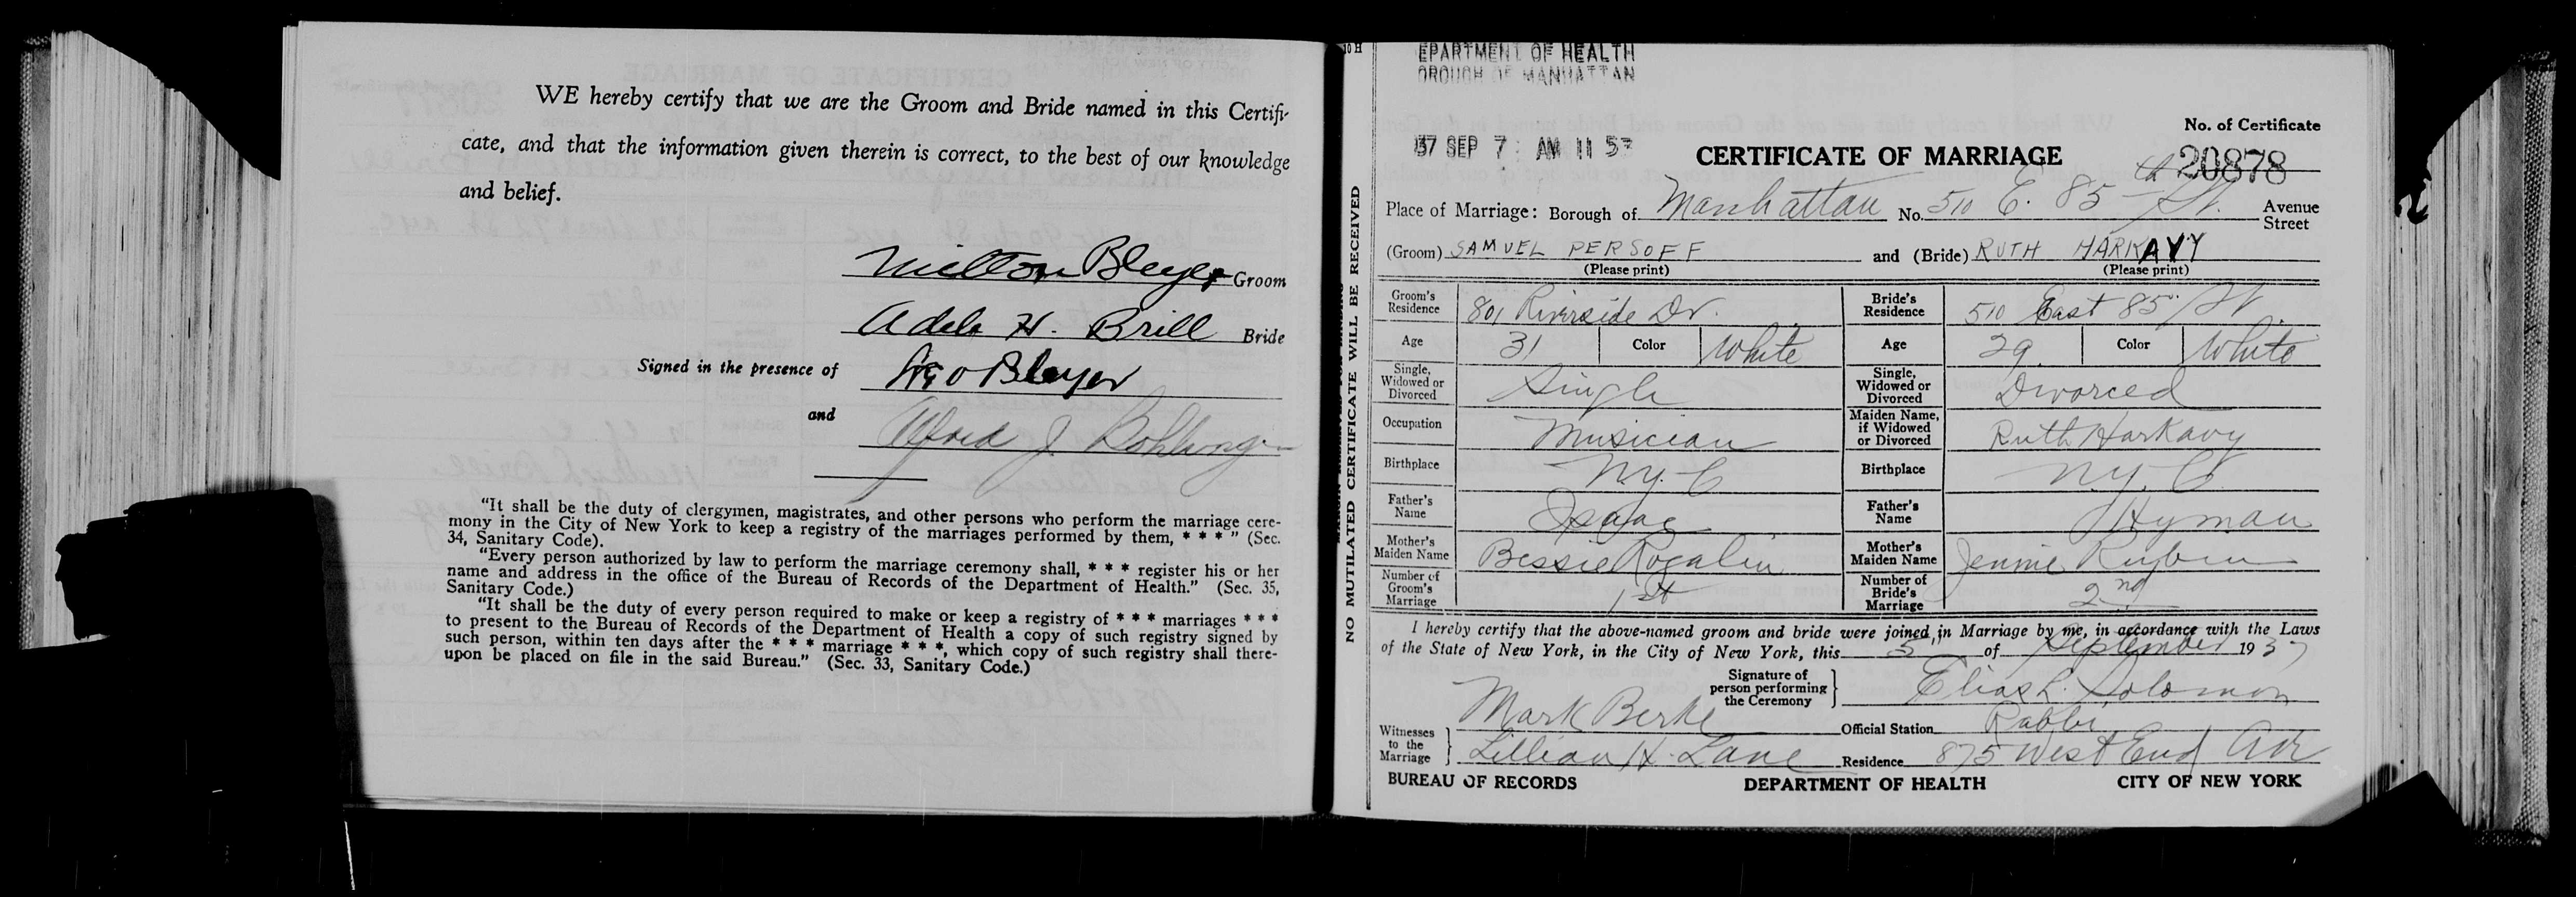 WE hereby certify that we are the Groom and Bride named in this Certifi-
cate, and that the information given therein is correct, to the best of our knowledge
and belief.
Milton Bleyer Groom
Adele H. Brill Bride
Signed in the presence of Leo Bleyer
and
Alfred J. Bohlinger
"It shall be the duty of clergymen, magistrates, and other persons who perform the marriage cere-
mony in the City of New York to keep a registry of the marriages performed by them, * * * " (Sec.
34, Sanitary Code).
"Every person authorized by law to perform the marriage ceremony shall, * * * register his or her
name and address in the office of the Bureau of Records of the Department of Health." (Sec. 35,
Sanitary Code.)
"It shall be the duty of every person required to make or keep a registry of * * * marriages * * *
to present to the Bureau of Records of the Department of Health a copy of such registry signed by
such person, within ten days after the * * * marriage * * *, which copy of such registry shall there-
upon be placed on file in the said Bureau." (Sec. 33, Sanitary Code.)
10 H
NO MUTILATED CERTIFICATE WILL BE RECEIVED
EPARTMENT OF HEALTH
OROUGH OF MANHATTAN
37 SEP 7 AM 11 5
No. of Certificate
CERTIFICATE OF MARRIAGE 20878
Place of Marriage: Borough of Manhattan No. 510 E. 85th St. Avenue Street
(Groom) SAMUEL PERSOFF and (Bride) RUTH HARKAVY
(Please print) (Please print)
Groom's Residence 801 Riverside Dr. Bride's Residence 510 East 85 St.
Age 31 Color White Age 29 Color White
Single, Widowed or Divorced Single Single, Widowed or Divorced Divorced
Occupation Musician Maiden Name, if Widowed or Divorced Ruth Harkavy
Birthplace N.Y.C Birthplace N.Y.C.
Father's Name Isaac Father's Name Hyman
Mother's Maiden Name Bessie Rogalin Mother's Maiden Name Jennie
Number of Groom's Marriage 1st Number of Bride's Marriage 2nd
I hereby certify that the above-named groom and bride were joined in Marriage by me, in accordance with the Laws
of the State of New York, in the City of New York, this 5 of September 1937
Signature of person performing the Ceremony Elias L. Solomon
Mark Berke Official Station Rabbi
Witnesses to the Marriage Lillian H. Lane Residence 875 West End Ave
BUREAU OF RECORDS DEPARTMENT OF HEALTH CITY OF NEW YORK